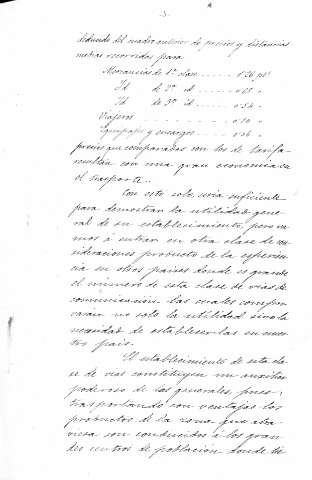 - 5 -
deducido del cuadro anterior de precios y distancias
metros recorridos para
Mercancias de 1ª clase ....... 0'76 pts
Id de 2ª id ....... 0'65 "
Id de 3ª id ....... 0'54 "
Viajeros ....... 0'10 "
Equipajes y encargos ....... 0'06 "
precios que comparados con los de tarifa
resultan con una gran economia en
el trasporte.
Con esto solo, seria suficiente
para demostrar la utilidad gene-
ral de su establecimiento, pero va-
mos á entrar en otra clase de con-
sideraciones producto de la esperien-
cia en otros paises donde es grande
el número de esta clase de vias de
comunicación las cuales compro-
baran no solo la utilidad sino la
necesidad de establecerlas en nues-
tro pais.
El establecimiento de esta cla-
se de vias constituyen un auxiliar
poderoso de las generales, pues,
trasportando con ventajas los
productos de la zona que atra-
viesa son conducidos á los gran-
des centros de población donde se